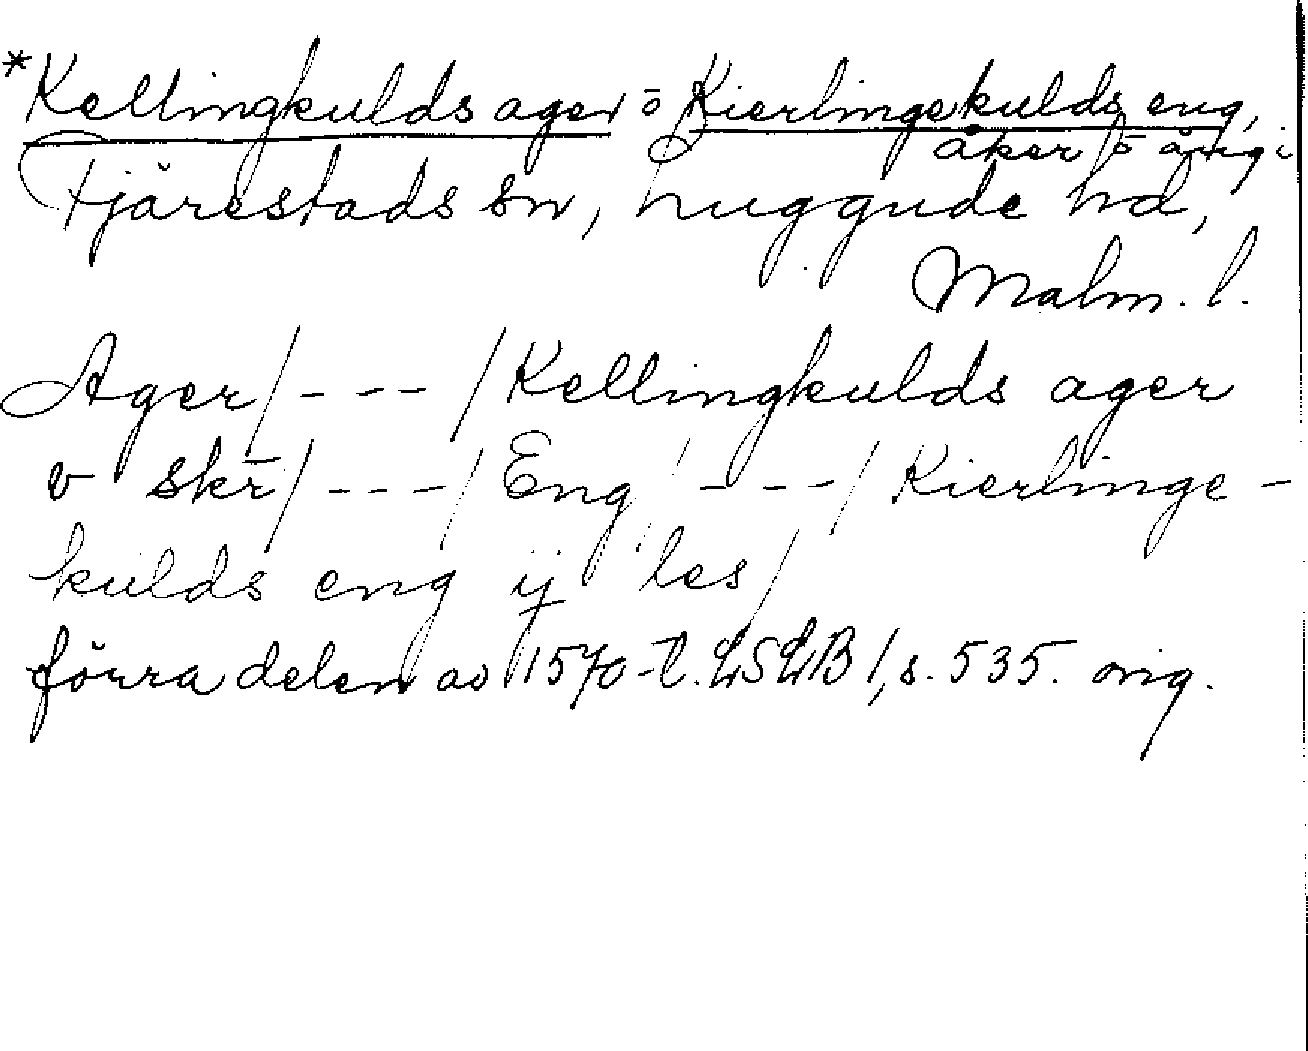 *Kellingkulds ager o Kierlingekulds eng,
åker o äng i
Fjärestads sn, Luggude hd,
Malm. l.
Ager /---/ Kellingkulds ager
v skr̄ /---/ Eng /---/ Kierlinge-
kulds eng ij les /
förra delen av 1570-t. LSLB I, s. 535. orig.